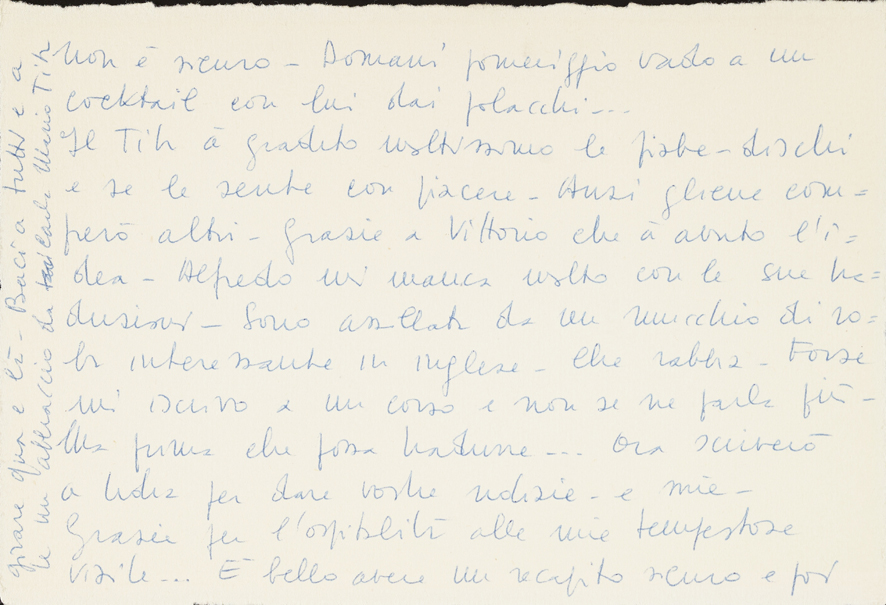 non è sicuro - Domani pomeriggio vado a un
cocktail con lui dai polacchi...
Il Tih à gradito moltissimo le fiabe-dischi
e se le sente con piacere - Anzi gliene com=
però altri - Grazie a Vittorio che à avuto l'i=
dea - Alfredo mi manca molto con le sue tra=
duzioni - Sono assillata da un mucchio di ro=
ba interessante in inglese - Che rabbia - Forse
mi iscrivo a un corso e non se ne parla più -
Ma prima che possa tradurre... Ora scriverò
a per dare vostre notizie - e mie -
Grazie per l'ospitalità alle mie tempestose
visite... È bello avere un recapito sicuro e poi
girare qua e là - Baci a tutti e a
te un abbraccio da Tih